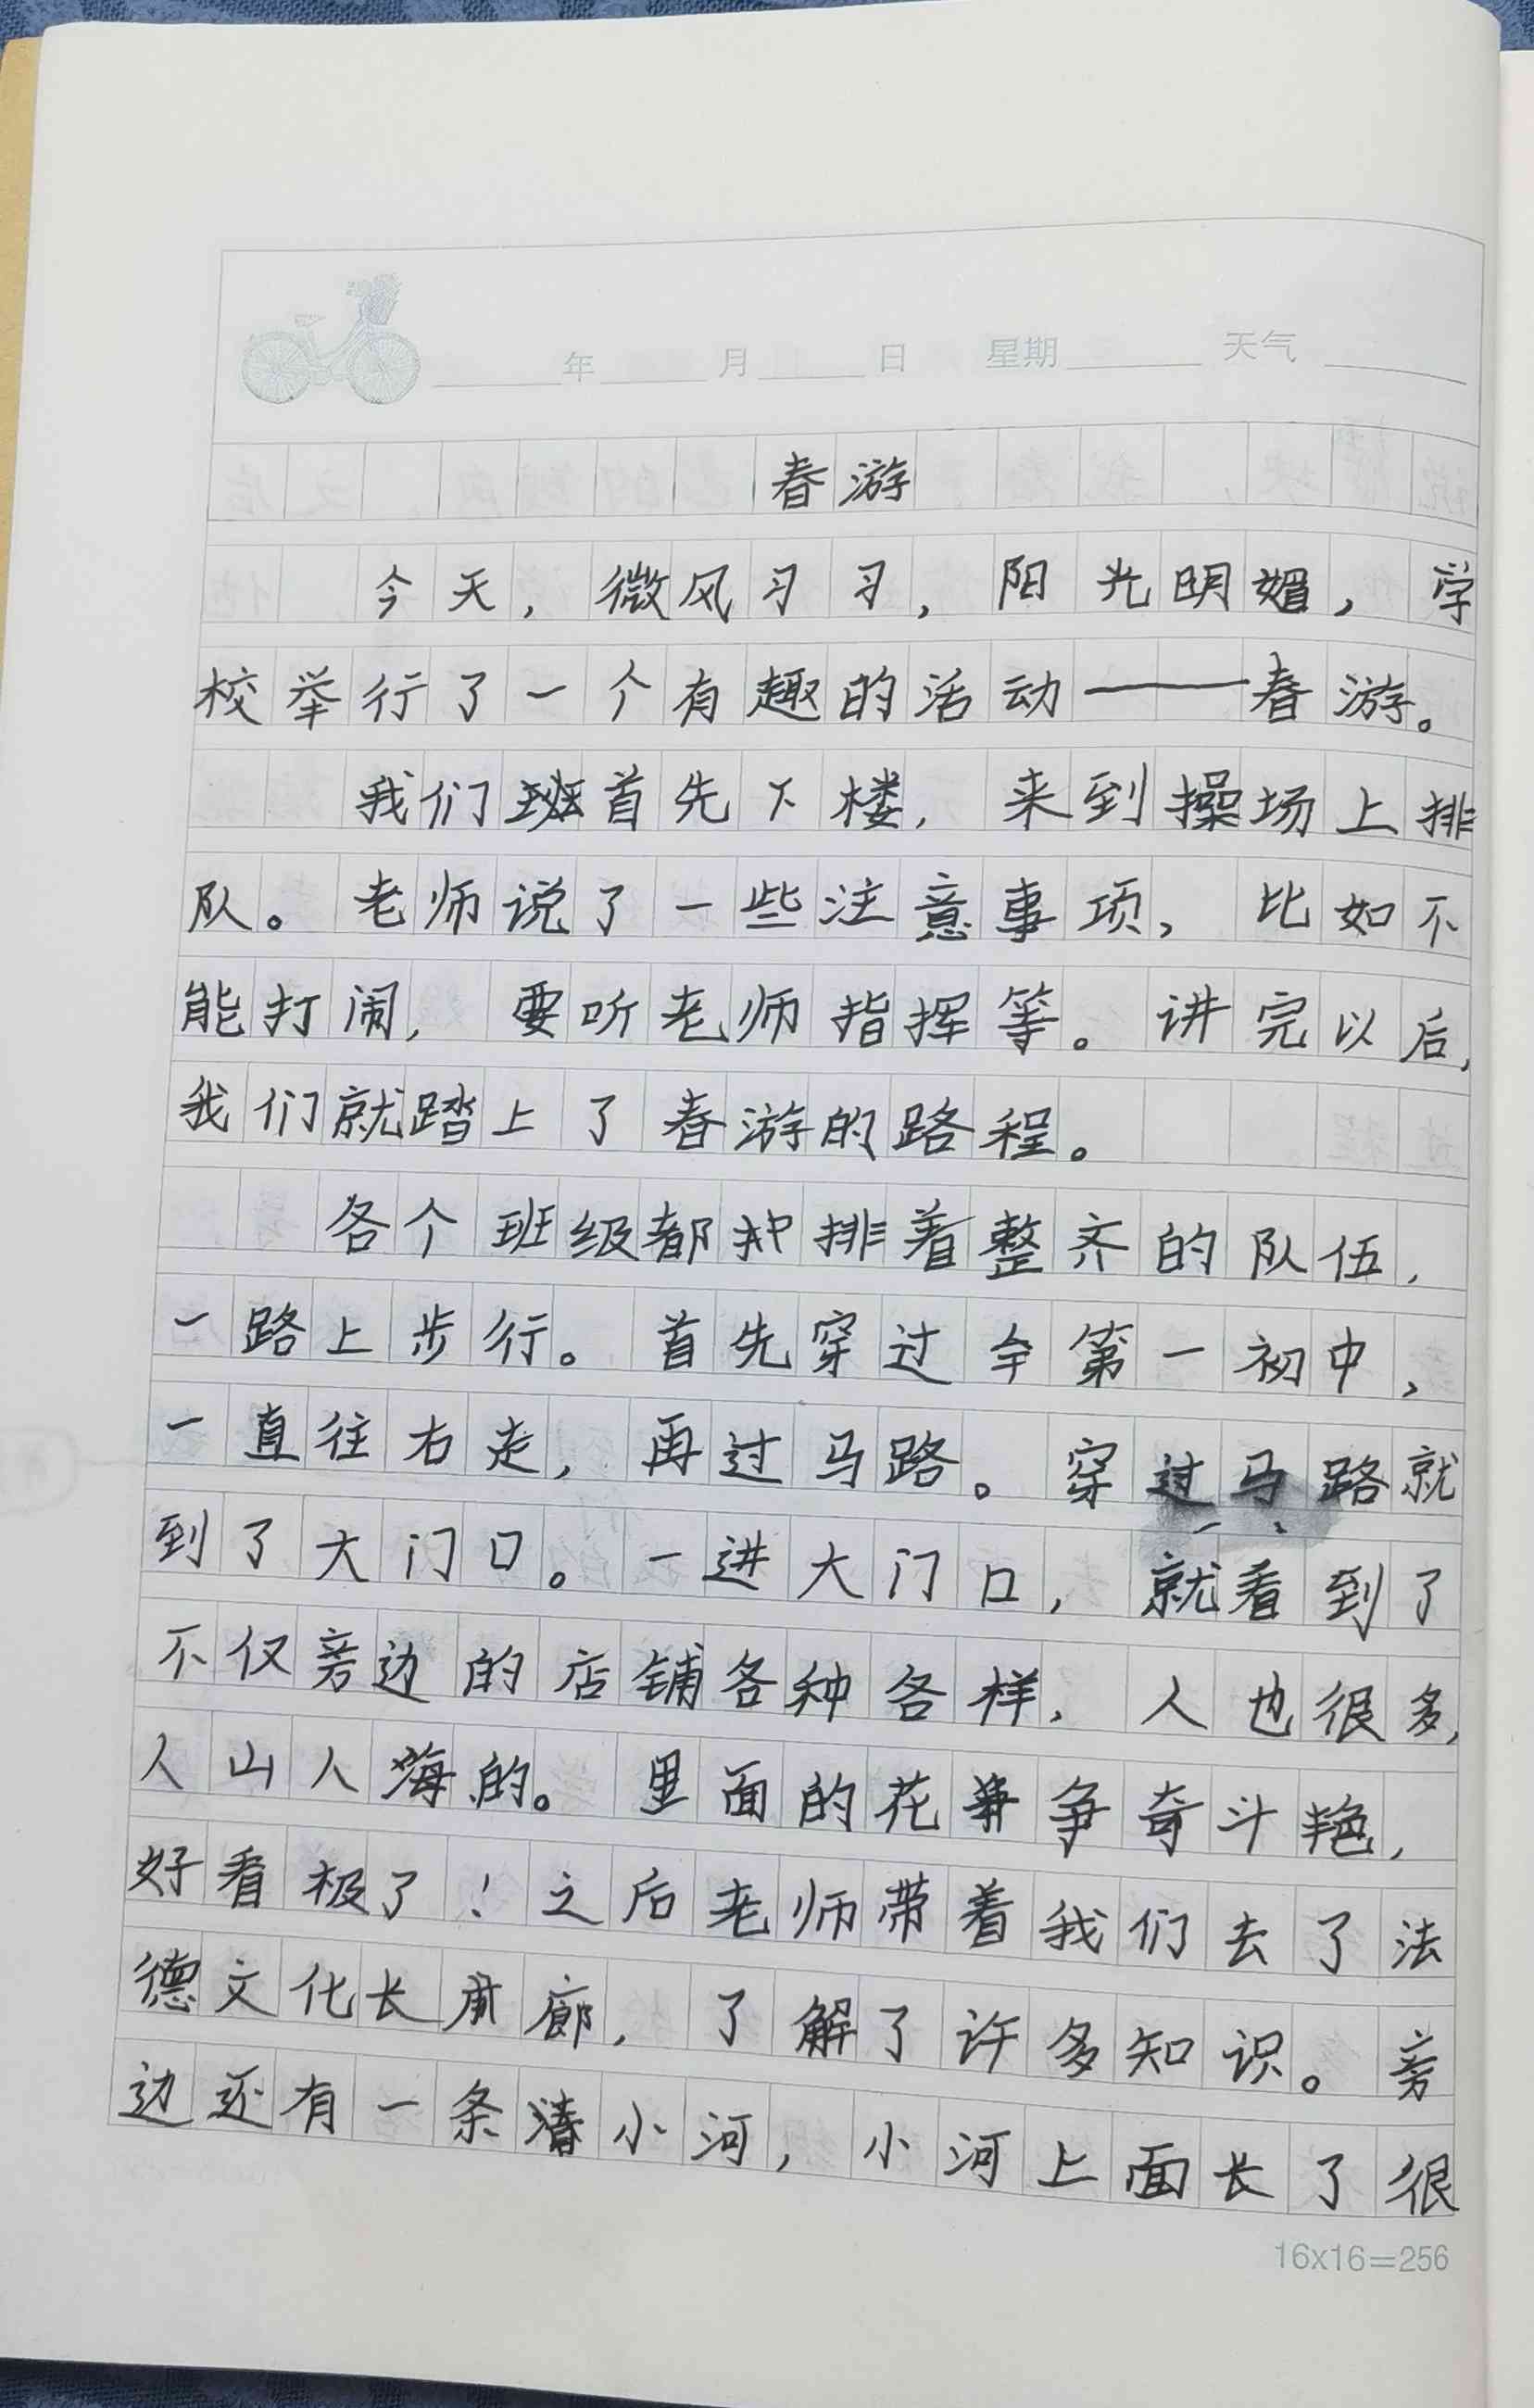 年 月 日 星期 天气
春游
今天，微风习习，阳光明媚，学
校举行了一个有趣的活动——春游。
我们班首先下楼，来到操场上排
队。老师说了一些注意事项，比如不
能打闹，要听老师指挥等。讲完以后，
我们就踏上了春游的路程。
各个班级都排着整齐的队伍，
一路上步行。首先穿过第一初中，
一直往右走，再过马路。穿过马路就
到了大门口。一进大门口，就看到了
不仅旁边的店铺各种各样，人也很多，
人山人海的。里面的花争奇斗艳，
好看极了！之后老师带着我们去了法
德文化长廊，了解了许多知识。旁
边还有一条清小河，小河上面长了很
16x16=256